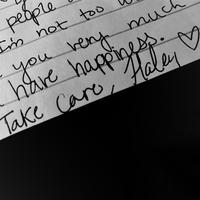 people a
I'm not too w
you very much
have happiness.
Take care, Haley ♡